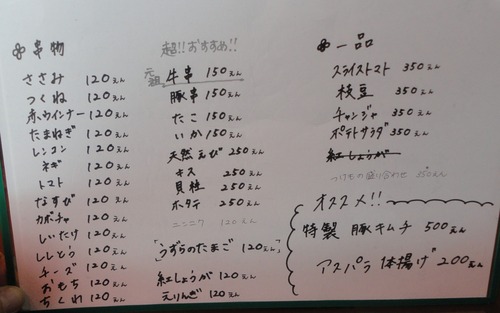 串物
ささみ 120えん
つくね 120えん
赤ウインナー120えん
たまねぎ 120えん
レンコン 120えん
ネギ 120えん
トマト 120えん
なすび 120えん
カボチャ 120えん
しいたけ 120えん
ししとう 120えん
チーズ 120えん
おもち 120えん
ちくわ 120えん
超!!おすすめ!!
元祖 牛串 150えん
豚串 150えん
たこ 150えん
いか 150えん
天然えび 250えん
キス 250えん
貝柱 250えん
ホタテ 250えん
ニンニク 120えん
「うずらのたまご 120えん」
紅しょうが 120えん
えりんぎ 120えん
一品
スライストマト 350えん
枝豆 350えん
チャンジャ 350えん
ポテトサラダ 350えん
紅しょうが
つけもの盛り合わせ 350えん
オススメ!!
特製 豚キムチ 500えん
アスパラ 体揚げ 200えん